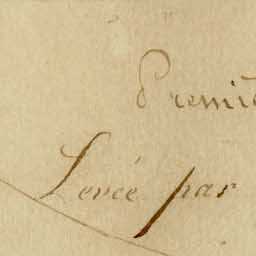 Premiè
Levée par